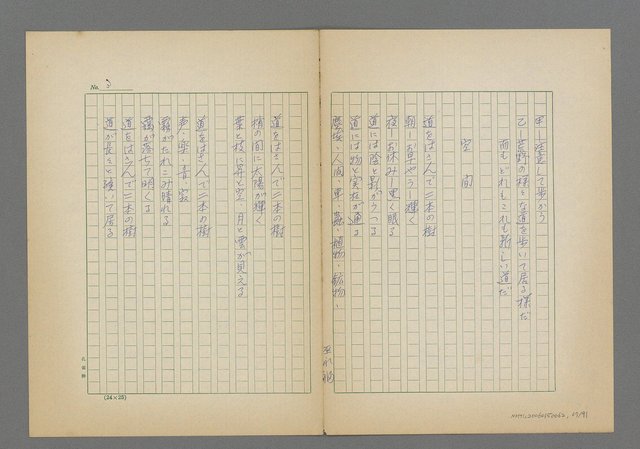 甲―注意して歩かう
乙―荒野の様な道を歩いて居る様だ
而もどれもこれも新しい道だ
空間
道をはさんで二本の樹
朝―お早やう―輝く
夜―お休み―黒く眠る
道には陰と昇がうつる
道には物と実在が通る
塵埃・人間・車・蟲・植物・鉱物・
No. 3
道をはさんで二本の樹
梢の間に太陽が輝く
葉と枝に昇と空・月と雲が見える
道をはさんで二本の樹
声・楽・音・寂
靄がたれこみ晴れる
露が落ちて明くる
道をはさんで二本の樹
道が長々と続いて居る
孔雀牌
(24×25)
NMTL20060150062, 17/91